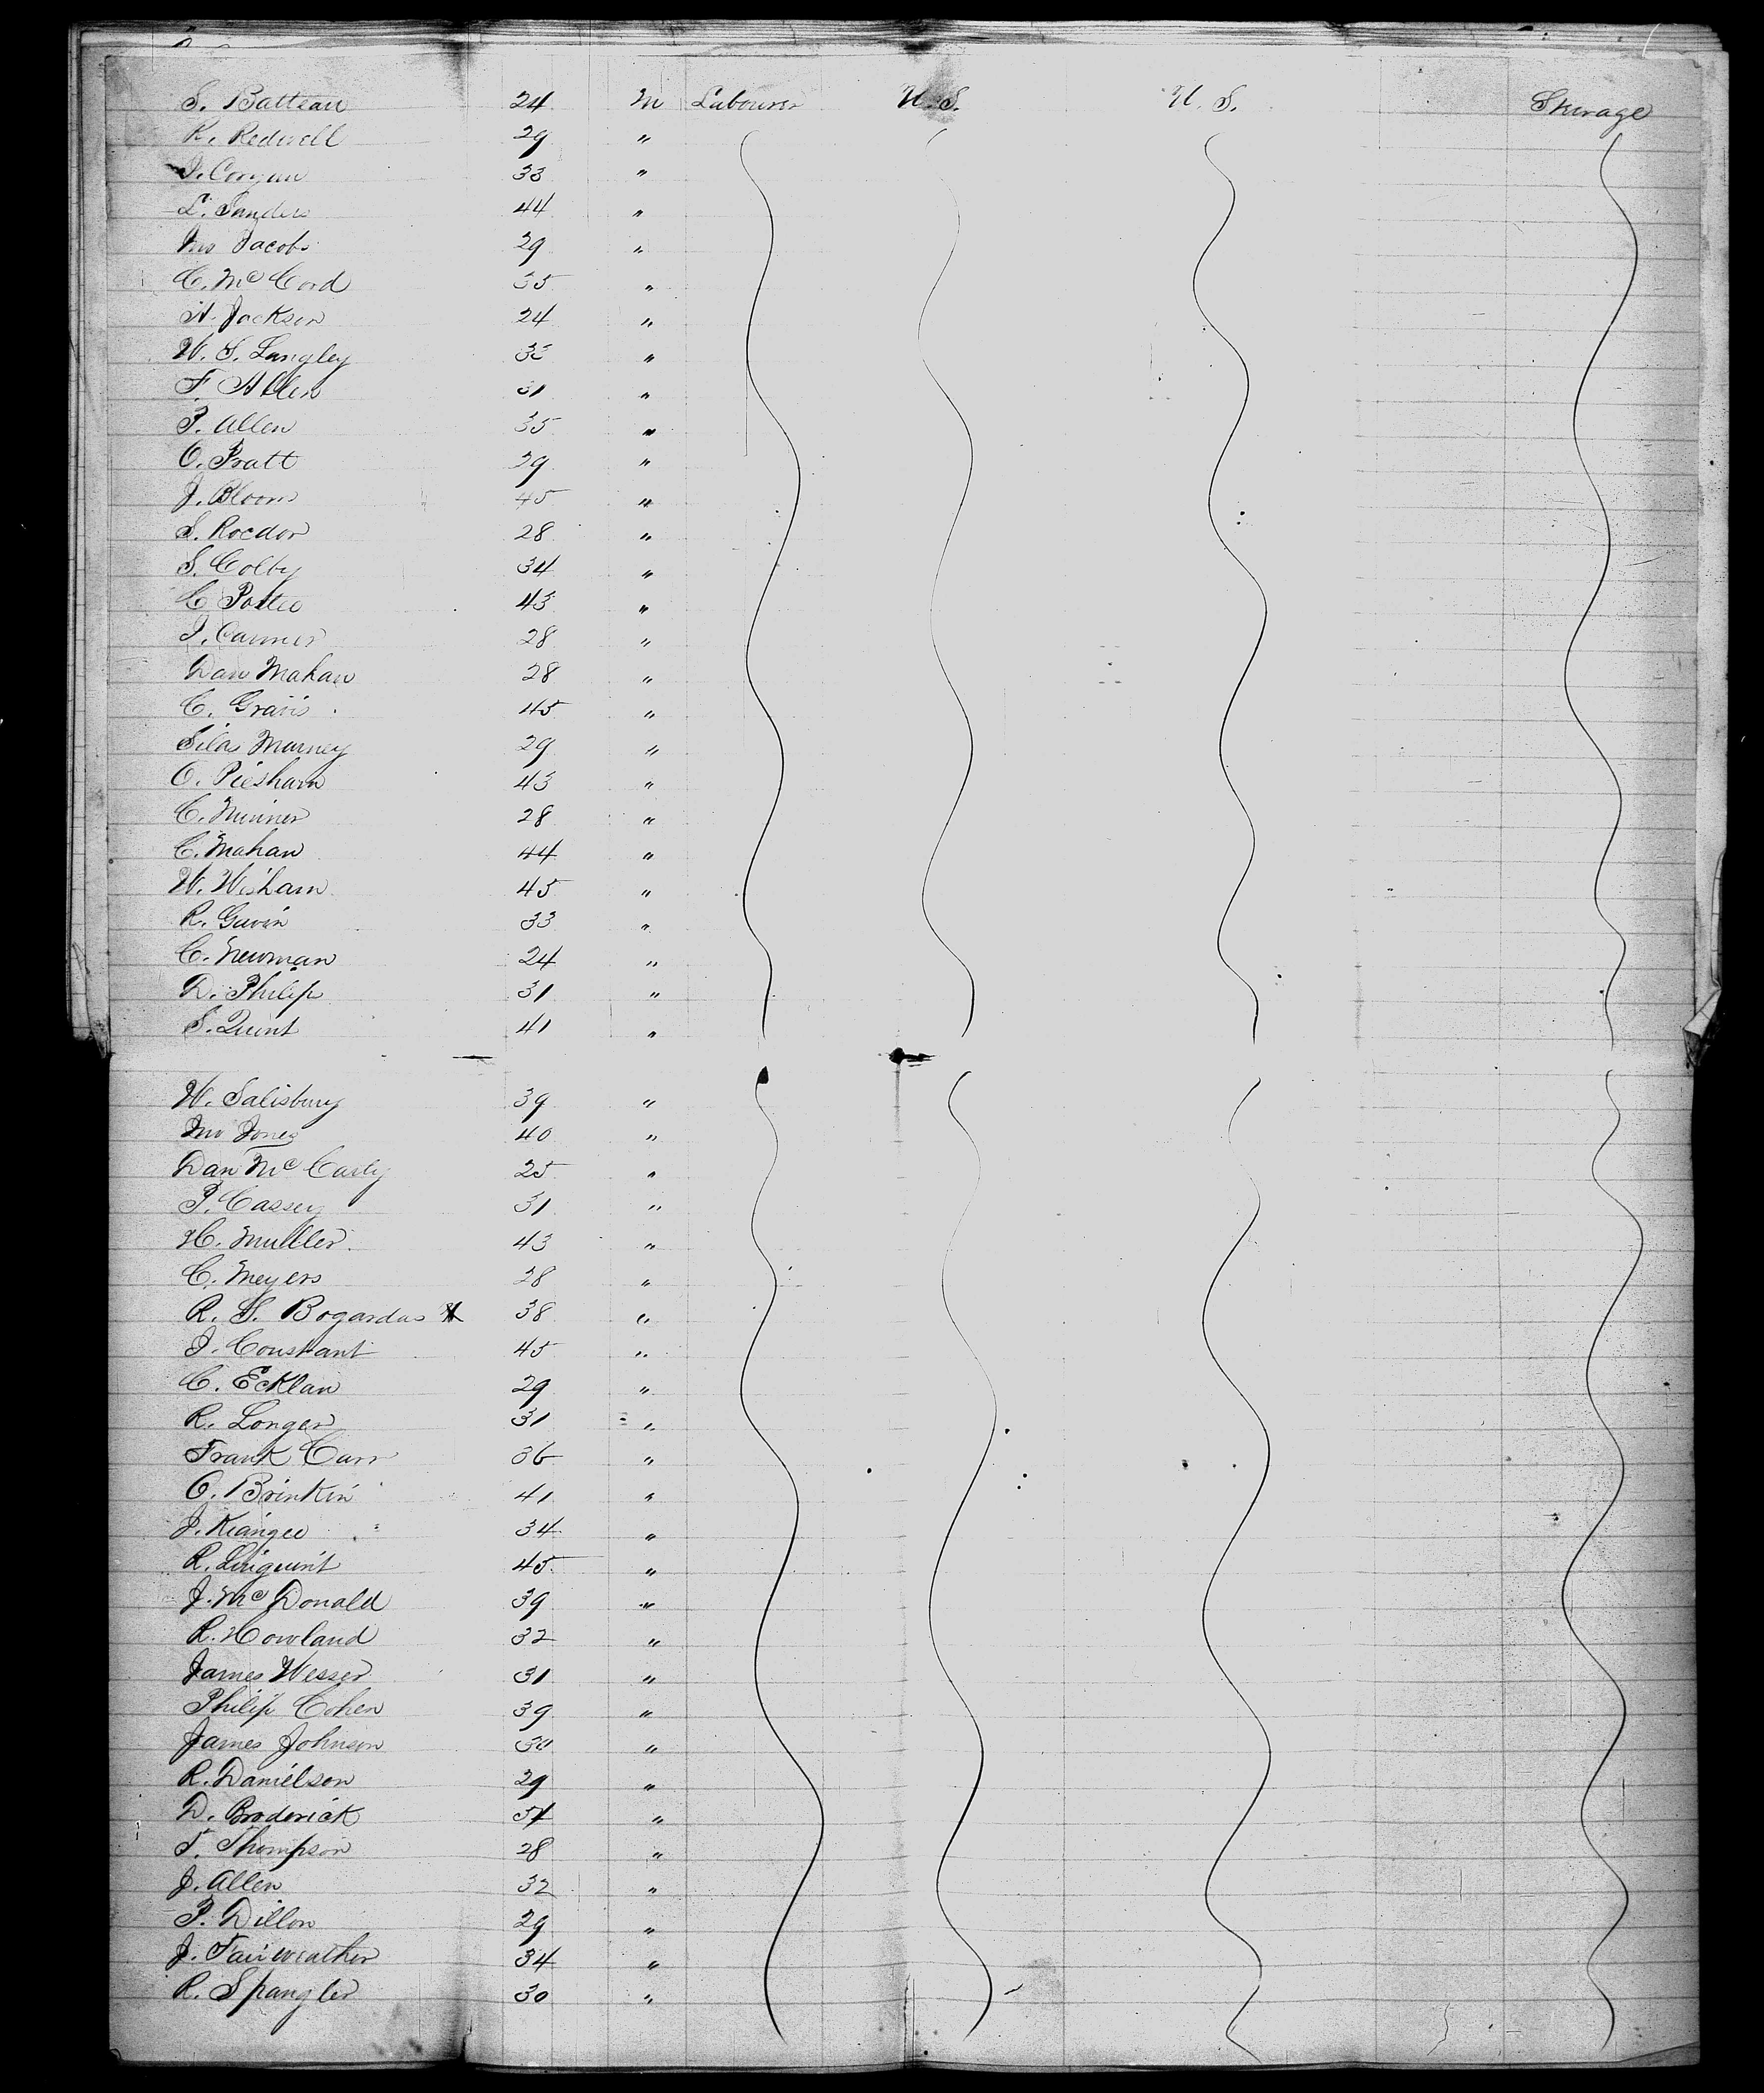 S. Batteau 24 M Labourer U. S. U. S. Steerage
R. Redwell 29 "
J. Corgan 33 "
L. Sanders 44 "
Jno Jacobs 29 "
C. McCord 35 "
A. Jackson 24 "
W. S. Langley "
F. Allen 31 "
P. Allen 35 "
O. Pratt 29 "
J. Bloom 45 "
S. Rocdor 28 "
S. Colby 34 "
C 43 "
J. 28 "
Dan Mahan 28 "
C. 45 "
Silas Marney 29 "
O. 43 "
C. 28 "
C. Mahan 44 "
W. Wisham 45 "
R. Gavin 33 "
C. Newman 24 "
D. Philip 31 "
S. Quint 41 "
W. Salisbury 39 "
Jno Jones 40 "
Dan McCarty 25 "
P. Cassey 31 "
H. Muller 43 "
C. Meyers 28 "
R. S. Bogardus X 38 "
J. Constant 45 "
C. Ecklan 29 "
R. Longer 31 "
Frank Carr 36 "
O. Brinkin 41 "
J. 34 "
R. Linquint 45 "
J. McDonald 39 "
R. Howland 32 "
James Wesser 31 "
Philip Cohen 39 "
James Johnson "
R. Danielson 29 "
D. Broderick "
T. Thompson 28 "
J. Allen 32 "
P. Dillon 29 "
J. Fairweather 34 "
R. Spangler 30 "